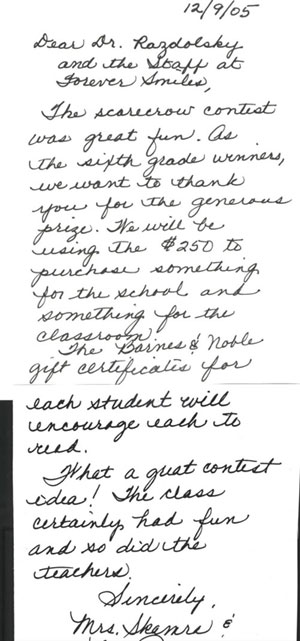 12/9/05
Dear Dr. Razdolsky
and the Staff at
Forever Smiles,
The scarecrow contest
was great fun. As
the sixth grade winners,
we want to thank
you for the generous
prize. We will be
using the $250 to
purchase something
for the school and
something for the
classroom.
The Barnes & Noble
gift certificates for
each student will
encourage each to
read.
What a great contest
idea! The class
certainly had fun
and so did the
teachers.
Sincerely,
Mrs. &